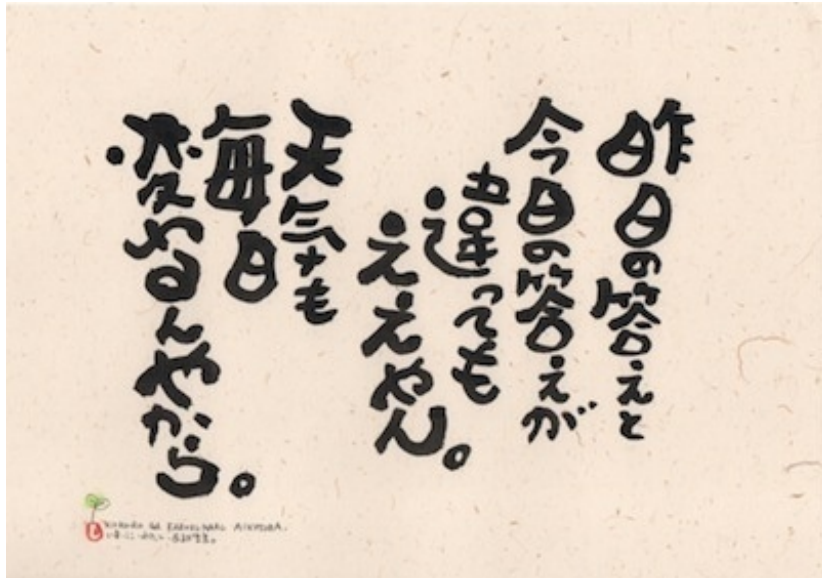 昨日の答えと
今日の答えが
違っても
ええやん。
天気も
毎日
変わるんやから。